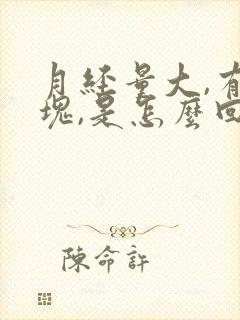 月經量大,有
塊,是怎麼回
陳命許